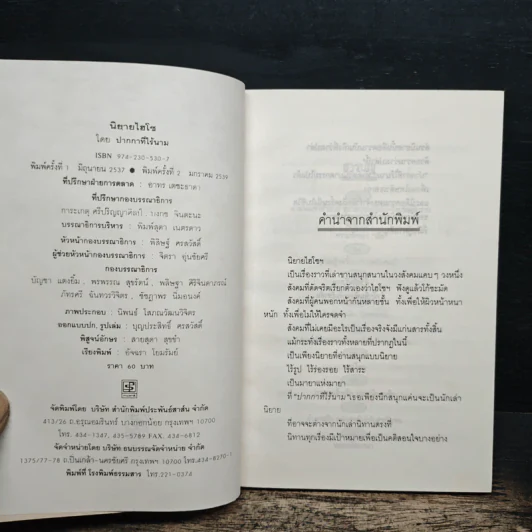 นิยายไฮโซ
โดย ปากกาที่ไร้นาม
ISBN 974-230-530-7
พิมพ์ครั้งที่ 1 มิถุนายน 2537 ● พิมพ์ครั้งที่ 2 มกราคม 2539
ที่ปรึกษาฝ่ายการตลาด : อาทร เตชะธาดา
ที่ปรึกษากองบรรณาธิการ
การะเกตุ ศรีปริญญาศิลป์ : จินตะนะ
บรรณาธิการบริหาร : พิมพ์สุดา เนตรดาว
หัวหน้ากองบรรณาธิการ : พิสิษฐ์ ศรสวัสดิ์
ผู้ช่วยหัวหน้ากองบรรณาธิการ : จิตรา อุ่นชัยศรี
กองบรรณาธิการ
บัญชา แตงยิ้ม, พรพรรณ สุขรัตน์, พลิษฐา ศิริจินดาภรณ์
ภัทรศรี ฉันทวรวิจิตร, ชัชฎาพร นิมอนงค์
ภาพประกอบ : นิพนธ์ โสภณวัฒนวิจิตร
ออกแบบปก, รูปเล่ม : บุญประสิทธิ์ ศรสวัสดิ์
พิสูจน์อักษร : สายสุดา สุขขำ
เรียงพิมพ์ : อัจฉรา โยมรัมย์
ราคา 60 บาท
จัดพิมพ์โดย บริษัท สำนักพิมพ์ประพันธ์สาส์น จำกัด
413/26 ถ.อรุณอมรินทร์ บางกอกน้อย กรุงเทพฯ 10700
โทร. 434-1347, 435-5789 FAX. 434-6812
จัดจำหน่ายโดย บริษัท อนบรรณจัดจำหน่าย จำกัด
1375/77-78 ถ.ปิ่นเกล้า-นครชัยศรี กรุงเทพฯ 10700 โทร.434-8270-1
พิมพ์ที่ โรงพิมพ์ธรรมสาร โทร.221-0374
คำนำจากสำนักพิมพ์
นิยายไฮโซฯ
เป็นเรื่องราวที่เล่าขานสนุกสนานในวงสังคมแคบๆ วงหนึ่ง
สังคมที่ดัดจริตเรียกตัวเองว่าไฮโซฯ ฟังดูแล้วโก้ชะมัด
สังคมที่ผู้คนพอกหน้ากันหลายชั้น ทั้งเพื่อให้ผิวหน้าหนา
หนัก ทั้งเพื่อไม่ให้ใครจดจำ
สังคมที่ไม่เคยมีอะไรเป็นเรื่องจริงจังมีแก่นสารทั้งสิ้น
แม้กระทั่งเรื่องราวทั้งหลายที่ปรากฏในนี้
เป็นเพียงนิยายที่อ่านสนุกแบบนิยาย
ไร้รูป ไร้ร่องรอย ไร้สาระ
เป็นมายาแห่งมายา
ที่ "ปากกาที่ไร้นาม" เธอเพียงนึกสนุกแค่นจะเป็นนักเล่า
นิยาย
ที่อาจจะต่างจากนักเล่านิทานตรงที่
นิทานทุกเรื่องมีเป้าหมายเพื่อเป็นคติสอนใจบางอย่าง